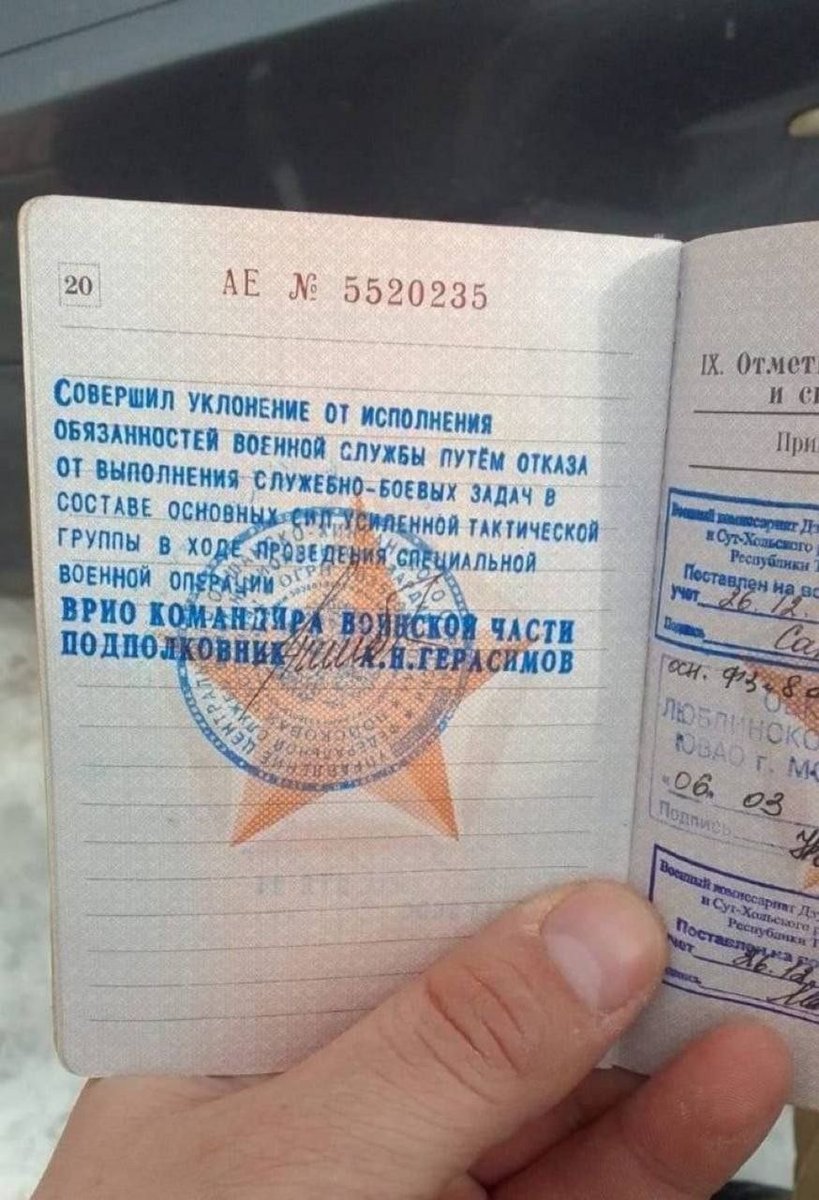 20
АЕ № 5520235
СОВЕРШИЛ УКЛОНЕНИЕ ОТ ИСПОЛНЕНИЯ
ОБЯЗАННОСТЕЙ ВОЕННОЙ СЛУЖБЫ ПУТЁМ ОТКАЗА
ОТ ВЫПОЛНЕНИЯ СЛУЖЕБНО-БОЕВЫХ ЗАДАЧ В
СОСТАВЕ ОСНОВНЫХ СИЛ УСИЛЕННОЙ ТАКТИЧЕСКОЙ
ГРУППЫ В ХОДЕ ПРОВЕДЕНИЯ СПЕЦИАЛЬНОЙ
ВОЕННОЙ ОПЕРАЦИИ
ВРИО КОМАНДИРА ВОИНСКОЙ ЧАСТИ
ПОДПОЛКОВНИК А.Н.ГЕРАСИМОВ
УПРАВЛЕНИЕ ЦЕНТРАЛ
ФЕДЕРАЛЬНОЙ СЛУЖ
IX. Отмет
и с
При
Военный комиссариат Д
и Сут-Хольского р
Республики Т
Поставлен на во
учет 26.12.
Подпись
осн. ФЗ
ЛЮБЛИНСКО
ЮВАО г. М
"06" 03
Подпись
Военный комиссариат Дз
и Сут-Хольского р
Республики Т
Поставлен на
учет 26.12